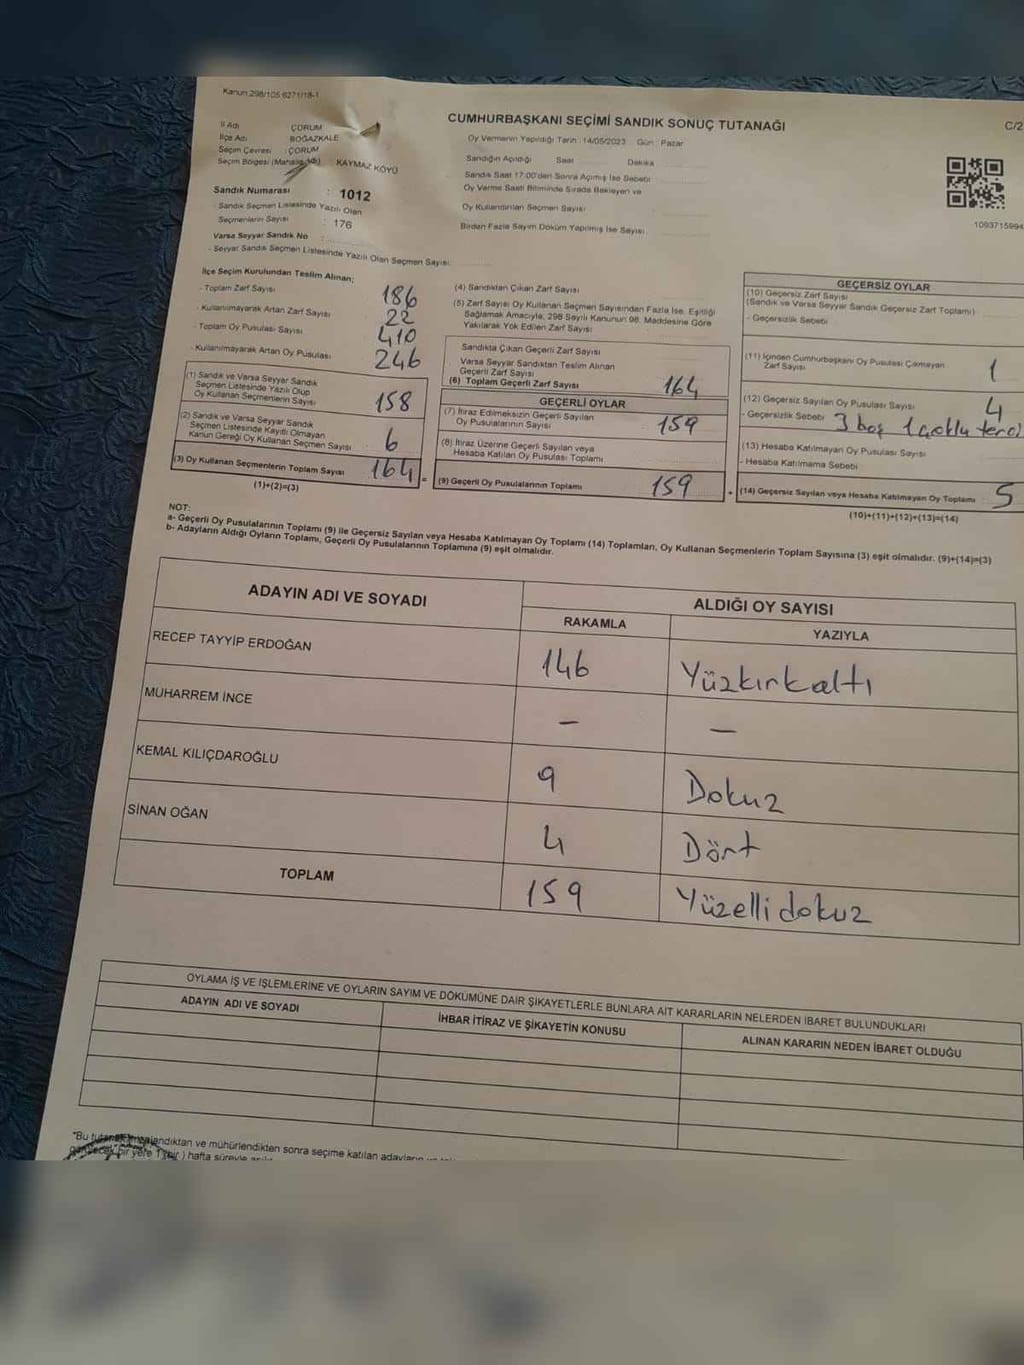 Kanun:298/105 6271/18-1
CUMHURBAŞKANI SEÇİMİ SANDIK SONUÇ TUTANAĞI
C/2
İl Adı : ÇORUM
İlçe Adı : BOĞAZKALE
Seçim Çevresi : ÇORUM
Seçim Bölgesi (Mahalle Adı) KAYMAZ KÖYÜ
Sandık Numarası : 1012
Sandık Seçmen Listesinde Yazılı Olan
Seçmenlerin Sayısı : 176
Varsa Seyyar Sandık No :
- Seyyar Sandık Seçmen Listesinde Yazılı Olan Seçmen Sayısı:
Oy Vermenin Yapıldığı Tarih : 14/05/2023 Gün : Pazar
Sandığın Açıldığı Saat Dakika
Sandık Saat 17:00'den Sonra Açımış İse Sebebi
Oy Verme Saati Bitiminde Sırada Bekleyen ve
Oy Kullandırılan Seçmen Sayısı
Birden Fazla Sayım Döküm Yapılmış İse Sayısı
1093715994
İlçe Seçim Kurulundan Teslim Alınan;
- Toplam Zarf Sayısı 186
- Kullanılmayarak Artan Zarf Sayısı 22
- Toplam Oy Pusulası Sayısı 410
- Kullanılmayarak Artan Oy Pusulası 246
(1) Sandık ve Varsa Seyyar Sandık
Seçmen Listesinde Yazılı Olup
Oy Kullanan Seçmenlerin Sayısı 158
(2) Sandık ve Varsa Seyyar Sandık
Seçmen Listesinde Kayıtlı Olmayan
Kanun Gereği Oy Kullanan Seçmen Sayısı : 6
(3) Oy Kullanan Seçmenlerin Toplam Sayısı 164 =
(1)+(2)=(3)
(4) Sandıktan Çıkan Zarf Sayısı
(5) Zarf Sayısı Oy Kullanan Seçmen Sayısından Fazla İse, Eşitliği
Sağlamak Amacıyla, 298 Sayılı Kanunun 98. Maddesine Göre
Yakılarak Yok Edilen Zarf Sayısı
Sandıkta Çıkan Geçerli Zarf Sayısı
Varsa Seyyar Sandıktan Teslim Alınan
Geçerli Zarf Sayısı
(6) Toplam Geçerli Zarf Sayısı 164
GEÇERLİ OYLAR
(7) İtiraz Edilmeksizin Geçerli Sayılan
Oy Pusulalarının Sayısı 159
(8) İtiraz Üzerine Geçerli Sayılan veya
Hesaba Katılan Oy Pusulası Toplamı
(9) Geçerli Oy Pusulalarının Toplamı 159 +
GEÇERSİZ OYLAR
(10) Geçersiz Zarf Sayısı
(Sandık ve Varsa Seyyar Sandık Geçersiz Zarf Toplamı)
- Geçersizlik Sebebi
(11) İçinden Cumhurbaşkanı Oy Pusulası Çıkmayan
Zarf Sayısı 1
(12) Geçersiz Sayılan Oy Pusulası Sayısı 4
- Geçersizlik Sebebi 3 boş 1 çoklu terci
(13) Hesaba Katılmayan Oy Pusulası Sayısı
- Hesaba Katılmama Sebebi
(14) Geçersiz Sayılan veya Hesaba Katılmayan Oy Toplamı : 5
(10)+(11)+(12)+(13)=(14)
NOT:
a- Geçerli Oy Pusulalarının Toplamı (9) ile Geçersiz Sayılan veya Hesaba Katılmayan Oy Toplamı (14) Toplamları, Oy Kullanan Seçmenlerin Toplam Sayısına (3) eşit olmalıdır. (9)+(14)=(3)
b- Adayların Aldığı Oyların Toplamı, Geçerli Oy Pusulalarının Toplamına (9) eşit olmalıdır.
ADAYIN ADI VE SOYADI
ALDIĞI OY SAYISI
RAKAMLA YAZIYLA
RECEP TAYYİP ERDOĞAN 146 Yüzkırkaltı
MUHARREM İNCE - -
KEMAL KILIÇDAROĞLU 9 Dokuz
SİNAN OĞAN 4 Dört
TOPLAM 159 Yüzellidokuz
OYLAMA İŞ VE İŞLEMLERİNE VE OYLARIN SAYIM VE DÖKÜMÜNE DAİR ŞİKAYETLERLE BUNLARA AİT KARARLARIN NELERDEN İBARET BULUNDUKLARI
ADAYIN ADI VE SOYADI İHBAR İTİRAZ VE ŞİKAYETİN KONUSU ALINAN KARARIN NEDEN İBARET OLDUĞU
"Bu
ve mühürlendikten sonra seçime katılan adayların
bir yere 1 (bir ) hafta süreyle